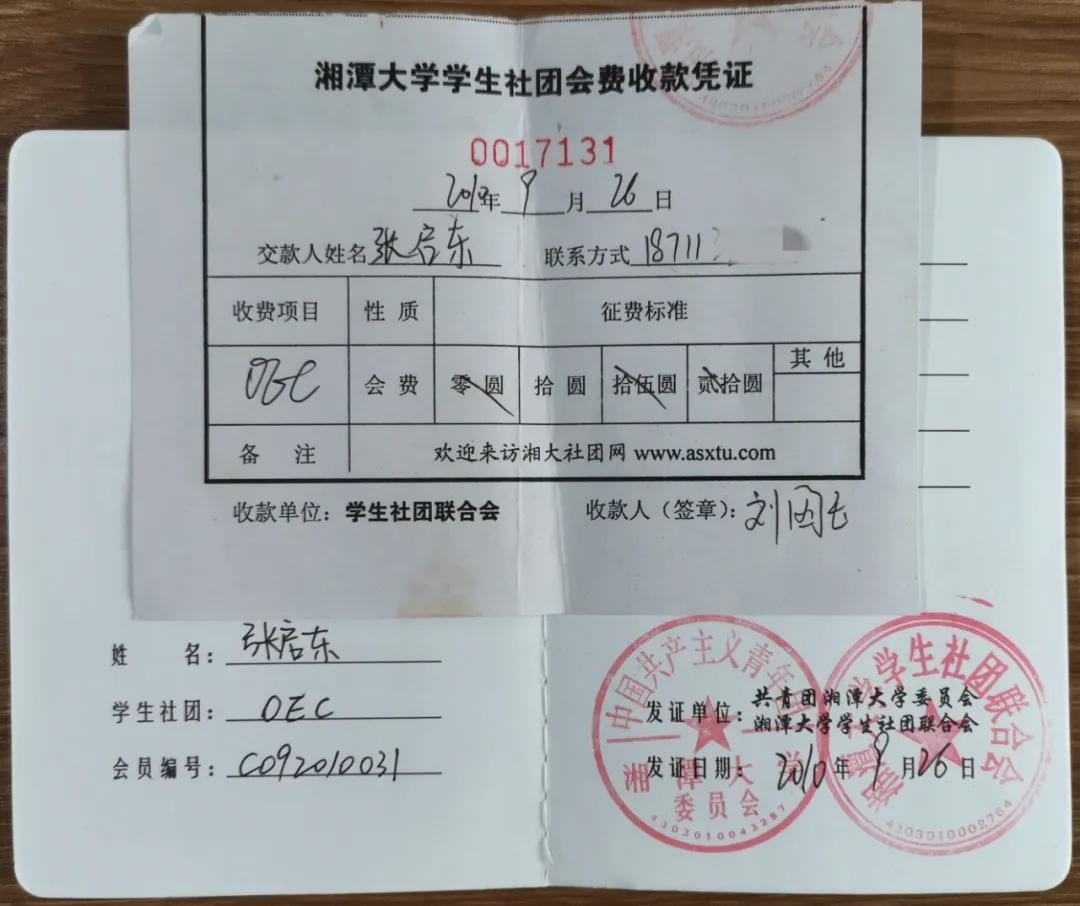 湘潭大学学生社团会费收款凭证
0017131
2010年9月26日
交款人姓名张启东 联系方式18711
收费项目 性质 征费标准
OEC 会费 零圆 拾圆 拾伍圆 贰拾圆 其他
备注 欢迎来访湘大社团网 www.asxtu.com
收款单位：学生社团联合会 收款人（签章）：刘
姓名：张启东
学生社团：OEC
会员编号：C092010031
中国共产主义青年团
湘潭大学
委员会
4303010043287
学学生社团联合会
4303010002764
发证单位：共青团湘潭大学委员会
湘潭大学学生社团联合会
发证日期：2010年9月26日